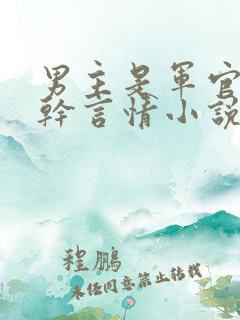 男主是军官高
幹言情小說
程鹏
未经同意禁止转载